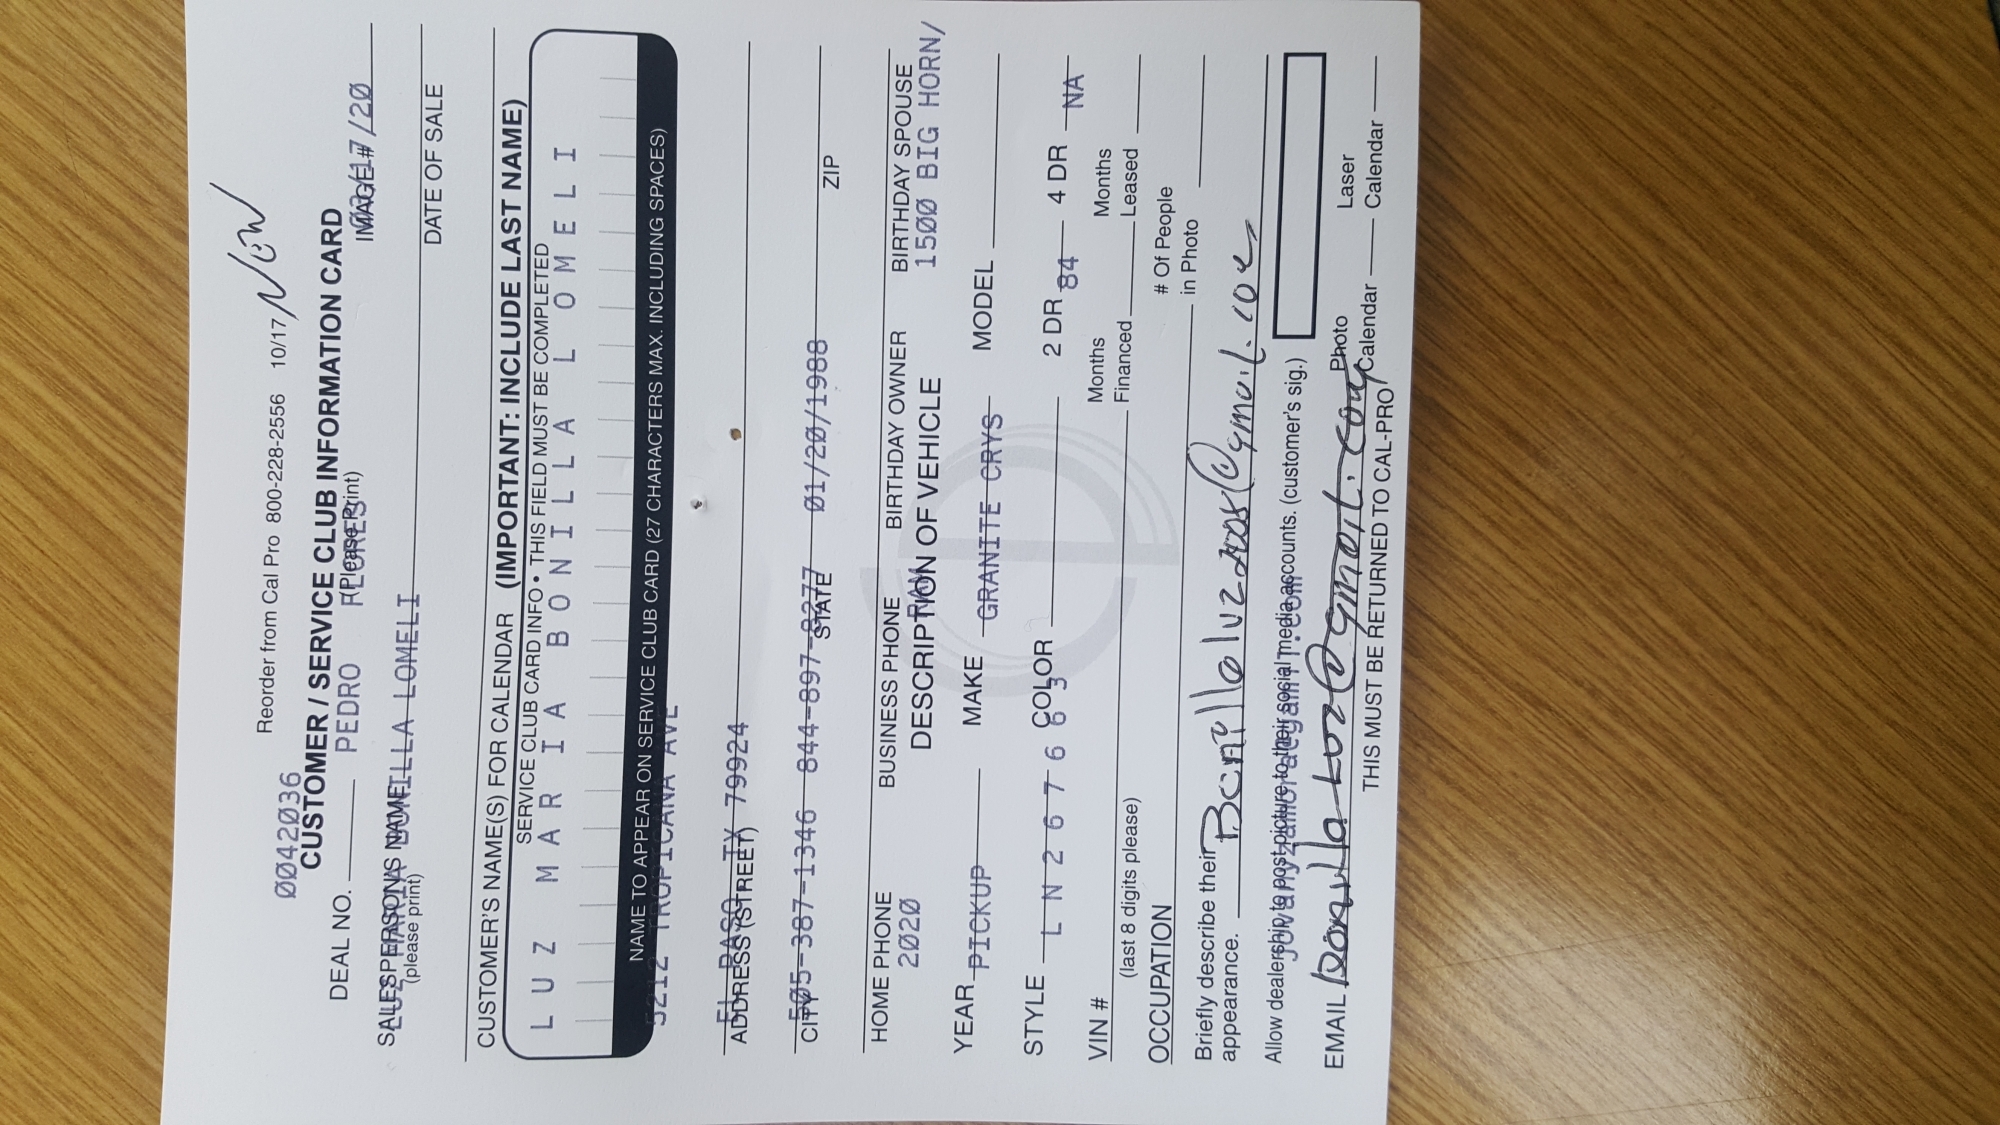 Reorder from Cal Pro 800-228-2556 10/17 NEW
00442036
CUSTOMER / SERVICE CLUB INFORMATION CARD
DEAL NO. PEDRO FLORES (Please Print) IMAGE# /17/20
SALESPERSON'S NAME LUZ MARIA BONILLA LOMELI
(please print) DATE OF SALE
CUSTOMER'S NAME(S) FOR CALENDAR (IMPORTANT: INCLUDE LAST NAME)
SERVICE CLUB CARD INFO • THIS FIELD MUST BE COMPLETED
LUZ MARIA BONILLA LOMELI
NAME TO APPEAR ON SERVICE CLUB CARD (27 CHARACTERS MAX. INCLUDING SPACES)
5212 TROPICANA AVE
EL PASO TX 79924
ADDRESS (STREET)
505-387-1346 844-897-8277 01/20/1988
CITY STATE ZIP
HOME PHONE BUSINESS PHONE BIRTHDAY OWNER BIRTHDAY SPOUSE
2020 RAM 1500 BIG HORN/
DESCRIPTION OF VEHICLE
YEAR MAKE MODEL
PICKUP GRANITE CRYS
STYLE COLOR 2 DR 4 DR
LN267663 84 NA
VIN # Months Financed Months Leased
(last 8 digits please)
OCCUPATION # Of People in Photo
Briefly describe their appearance.
@gmail.com
Allow dealership to post picture to their social media accounts. (customer's sig.)
EMAIL @gmail.com Photo Calendar Laser Calendar
THIS MUST BE RETURNED TO CAL-PRO